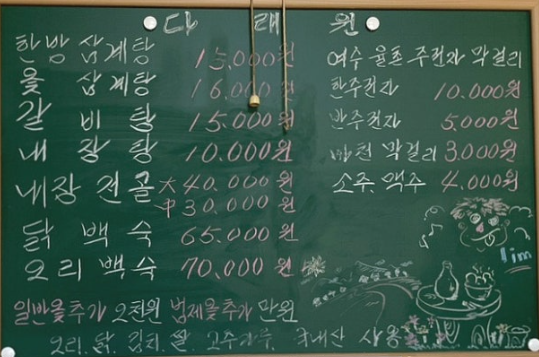 다래원
한방 삼계탕 15,000원
옻 삼계탕 16,000원
갈비탕 15,000원
내장탕 10,000원
내장전골 大 40,000원
中 30,000원
닭백숙 65,000원
오리백숙 70,000원
일반옻추가 2천원 범제옻추가 만원
오리, 닭, 김치, 쌀, 고추가루, 국내산 사용
여수 율촌 주전자 막걸리
한주전자 10,000원
반주전자 5,000원
막걸리 3,000원
소주, 맥주 4,000원
lim